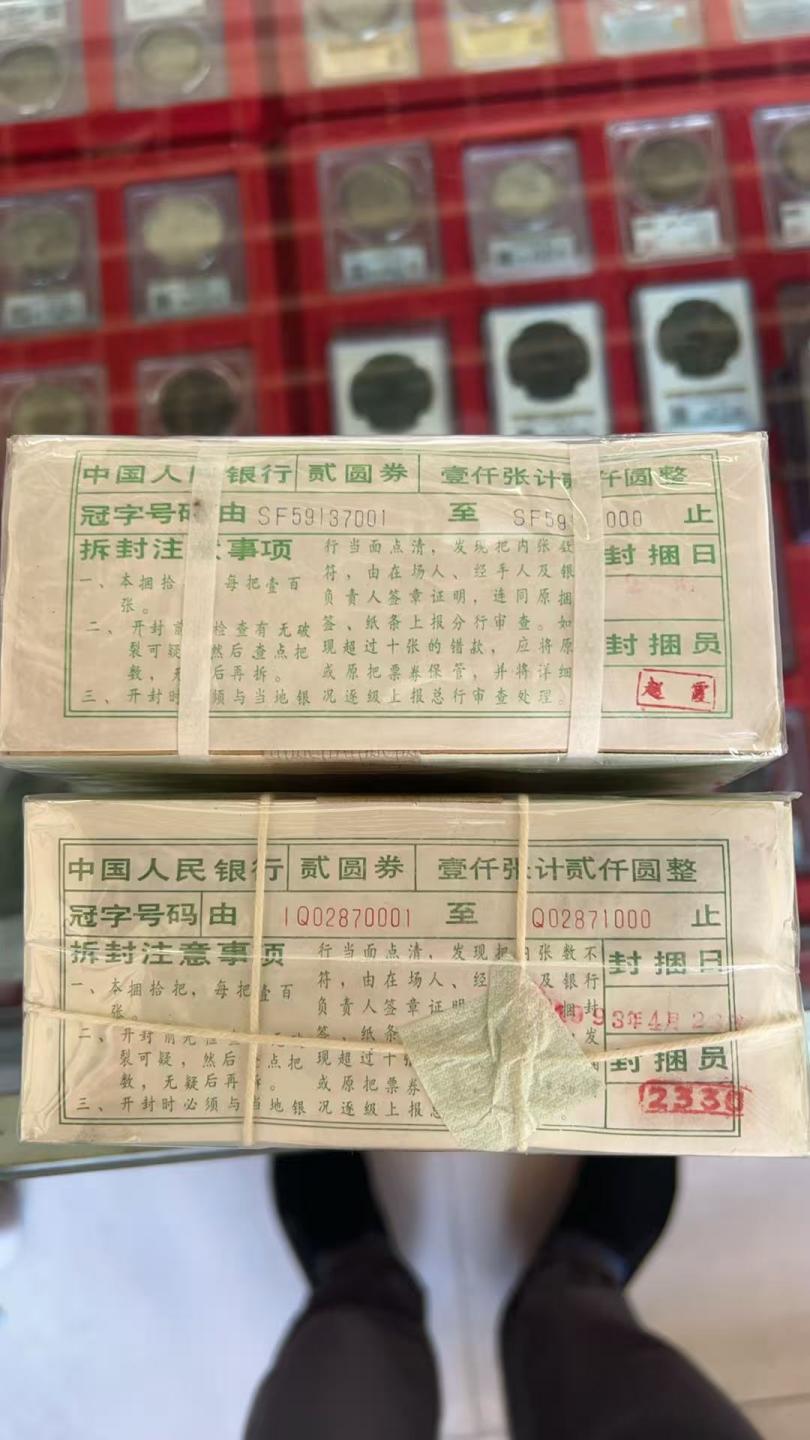 中国人民银行 贰圆券 壹仟张计贰仟圆整
冠字号码 由 SF59137001 至 SF59 000 止
拆封注意事项
一、本捆拾 每把壹百
张。
二、开封前 检查有无破
裂可疑 然后查点把
数, 后再拆。
三、开封时必须与当地银
行当面点清,发现把内张数
符,由在场人、经手人及银
负责人签章证明,连同原捆
签、纸条上报分行审查。如
现超过十张的错款,应将原
或原把票券保管,并将详细
况逐级上报总行审查处理。
封捆日
封捆员
赵霞
中国人民银行 贰圆券 壹仟张计贰仟圆整
冠字号码 由 IQ02870001 至 Q02871000 止
拆封注意事项
一、本捆拾把,每把壹百
张。
二、开封前先检查有无破
裂可疑,然后查点把
数,无疑后再拆。
三、开封时必须与当地银
行当面点清,发现把内张数不
符,由在场人、经 及银行
负责人签章证明 捆封
签、纸条 发
现超过十张
或原把票券
况逐级上报总 。
封捆日
93年4月2
封捆员
2330